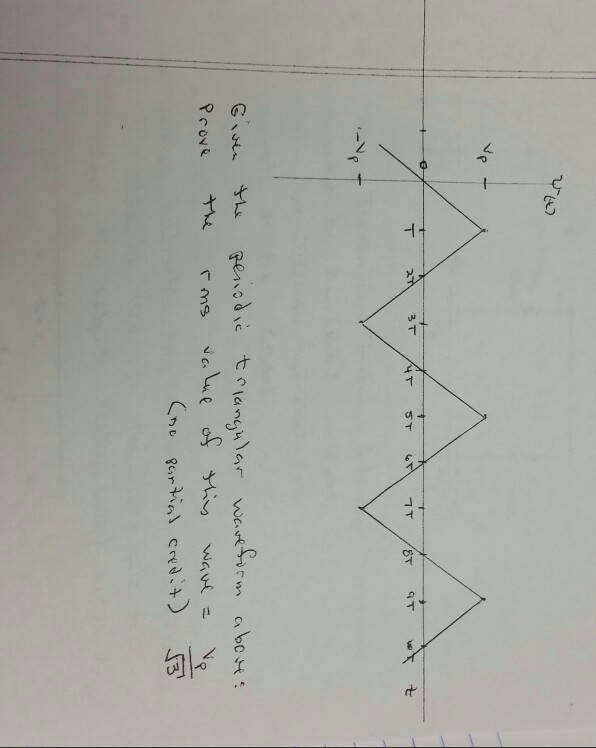 v(t)
Vp
0 T 2T 3T 4T 5T 6T 7T 8T 9T 10T t
-Vp
Given the periodic triangular waveform above:
Prove the rms value of this wave = Vp/√3
(no partial credit)